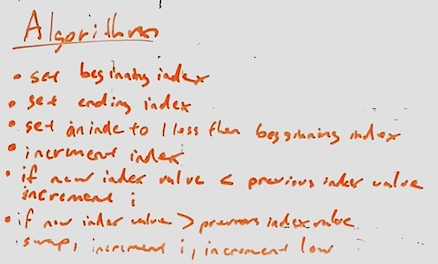 Algorithm
• set beginning index
• set ending index
• set an inde to 1 less then begginning index
• increment index
• if new index value < previous index value
increment i
• if new index value > previous index value
swap, increment i, increment low